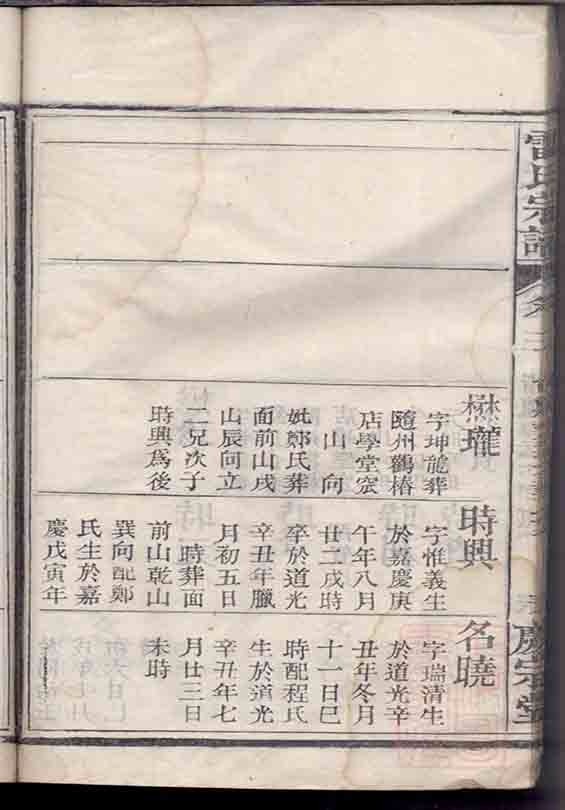 雷氏宗譜
卷三
慶宗堂
懋瓏
字坤龍葬
隨州鶴椿
店學堂宏
山向
妣鄭氏葬
面前山戌
山辰向立
二兄次子
時興爲後
時興
字惟義生
於嘉慶庚
午年八月
廿二戌時
卒於道光
辛丑年臘
月初五日
時葬面
前山乾山
巽向配鄭
氏生於嘉
慶戊寅年
名曉
字瑞清生
於道光辛
丑年冬月
十一日巳
時配程氏
生於道光
辛丑年七
月廿三日
未時